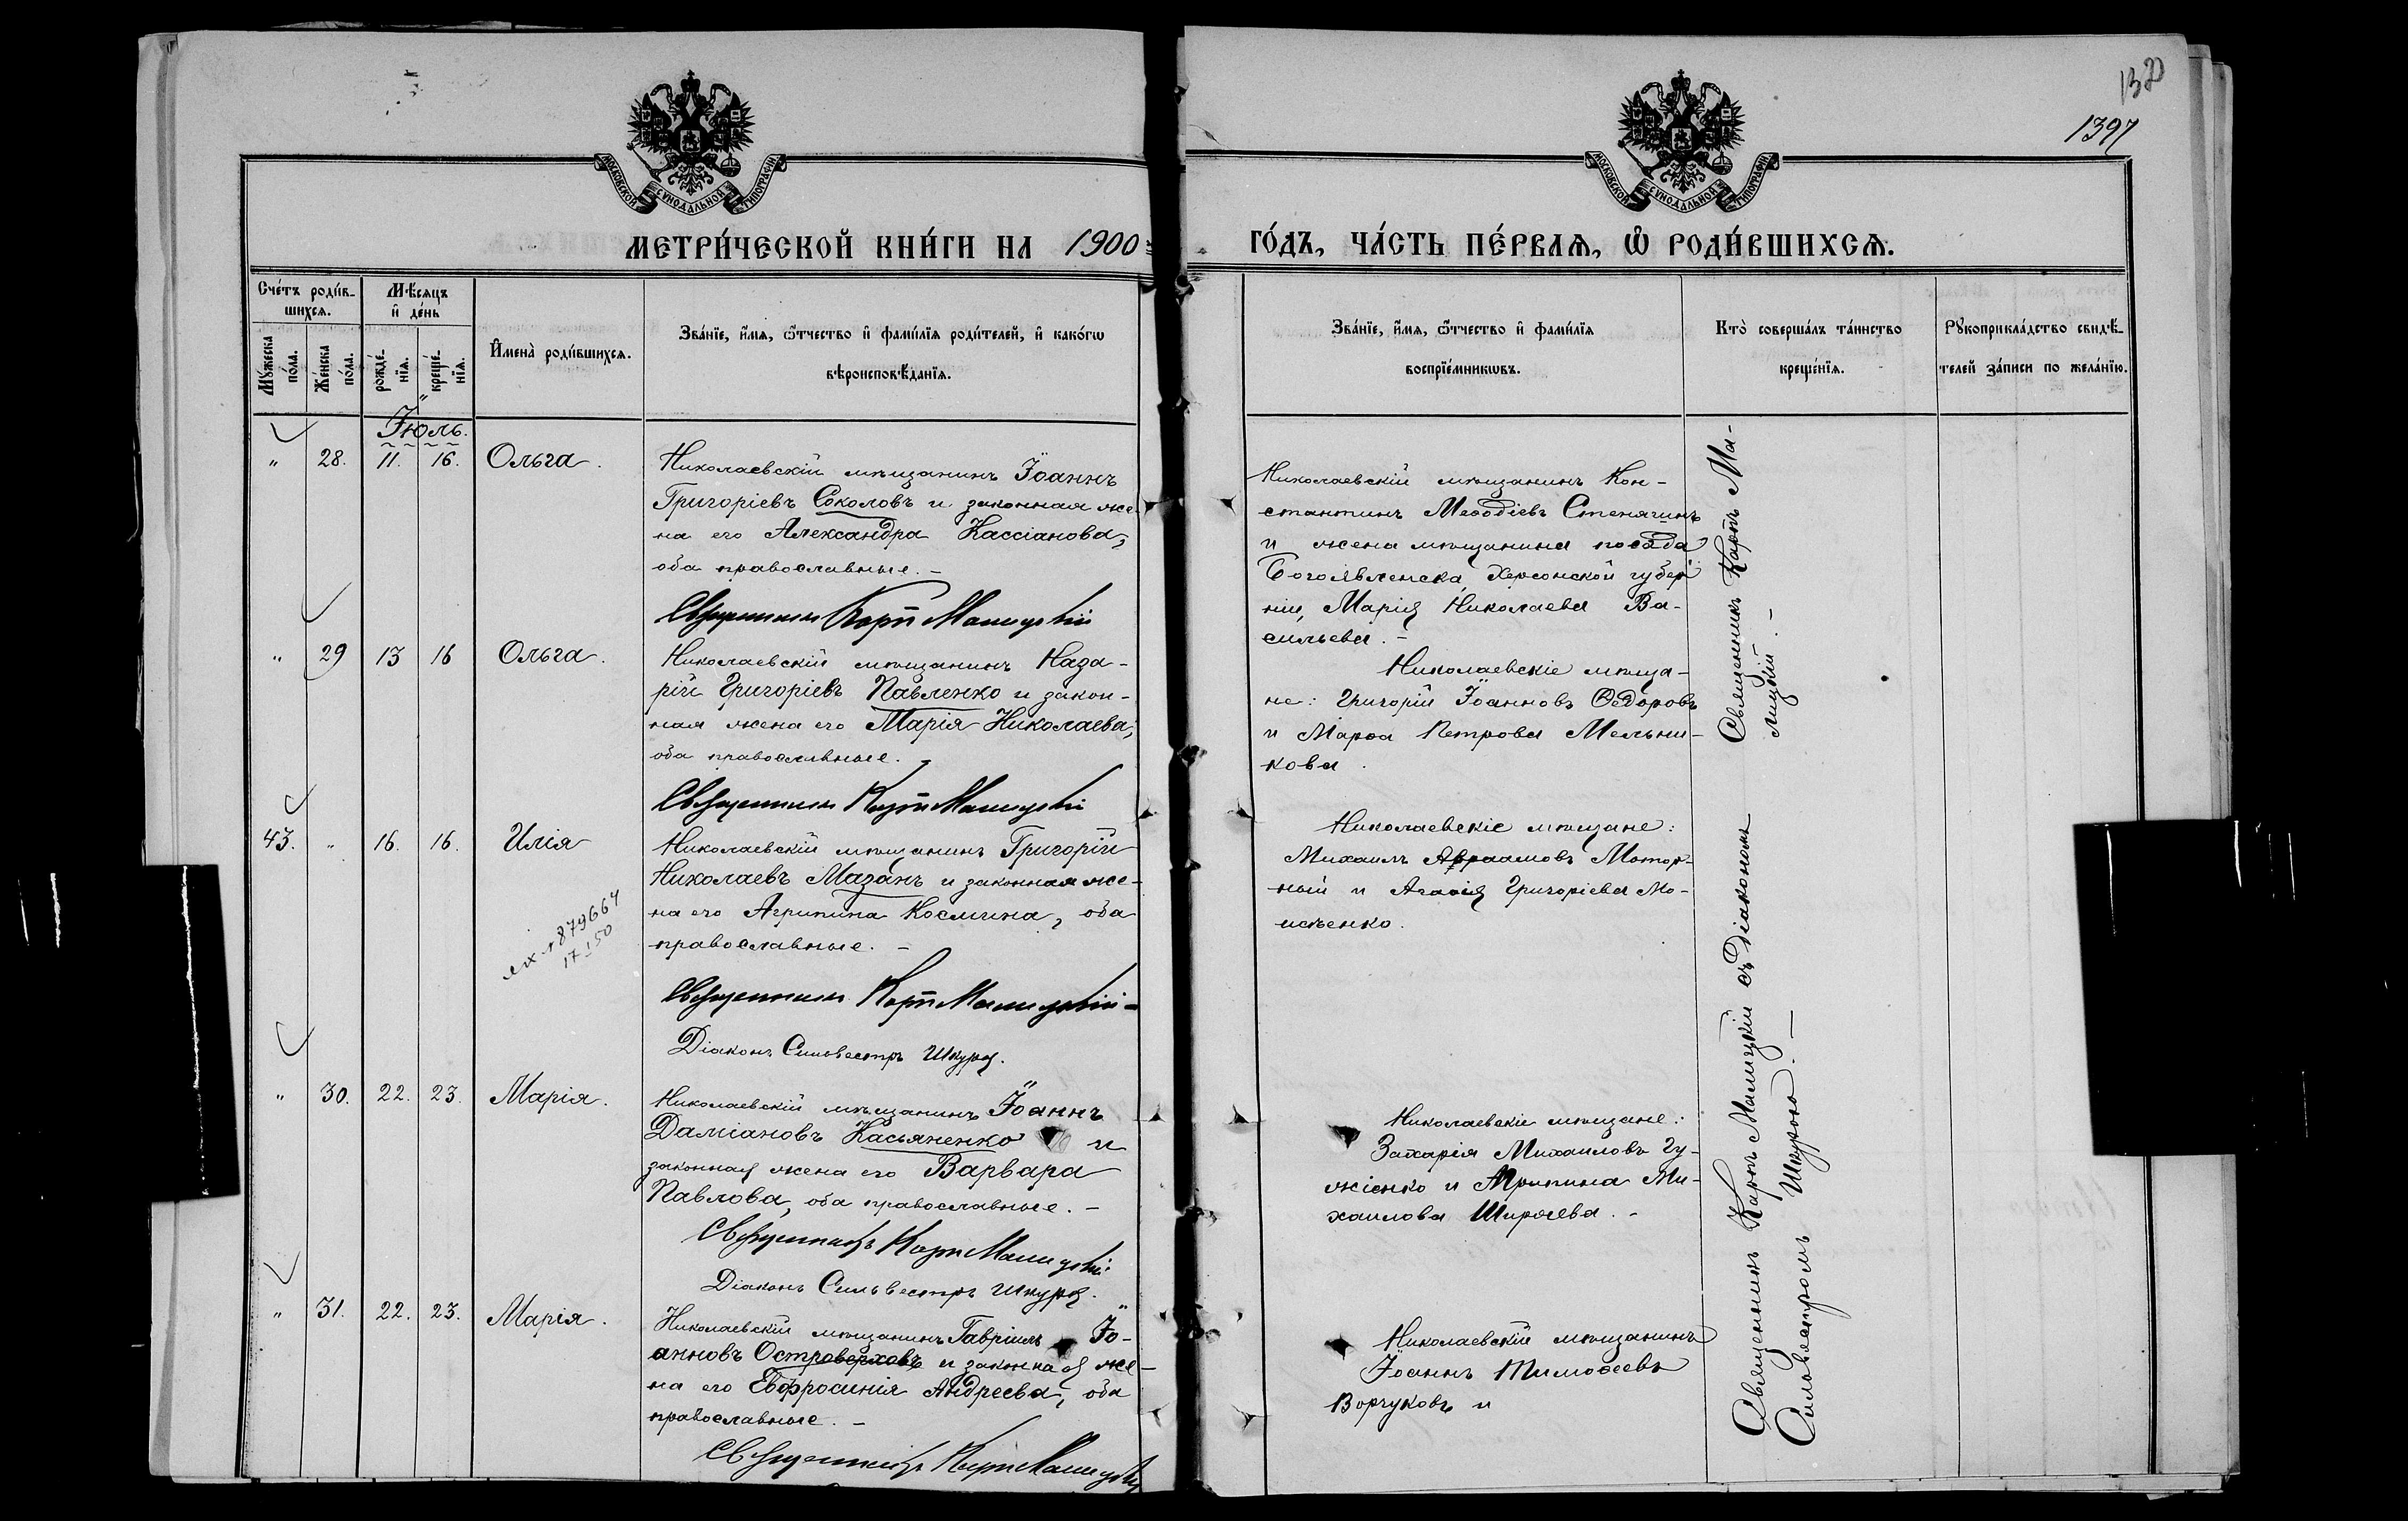 1397
МОСКОВСКОЙ СѴНОДАЛЬНОЙ ТИПОГРАФІИ
МОСКОВСКОЙ СѴНОДАЛЬНОЙ ТИПОГРАФІИ
МЕТРИ́ЧЕСКОЙ КНИ́ГИ НА 1900
ГО́ДЪ, ЧА́СТЬ ПЕ́РВАѦ, Ѡ҆ РОДИ́ВШИХСѦ.
Сче́тъ роди́в-
шихсѧ.
Мꙋ́жеска
по́ла.
Же́нска
по́ла.
Мѣ́сѧцъ
и҆ де́нь
рожде́-
нїѧ.
креще́-
нїѧ.
И҆мена̀ роди́вшихсѧ.
Зва́нїе, и҆́мѧ, ѻ҆́тчество и҆ фами́лїѧ роди́телей, и҆ како́гѡ
вѣроисповѣ́данїѧ.
Зва́нїе, и҆́мѧ, ѻ҆́тчество и҆ фами́лїѧ
воспрїе́мникѡвъ.
Кто̀ соверша́лъ та́инство
креще́нїѧ.
Рꙋкоприкла́дство свидѣ́-
телей за́писи по жела́нїю.
Іюль.
" 28. 11. 16. Ольга.
Николаевскій мѣщанинъ Іоаннъ
Григоріевъ Соколовъ и законная же-
на его Александра Кассіанова,
оба православные. –
Священникъ Карпъ Малицкій
Николаевскій мѣщанинъ Кон-
стантинъ Меѳодіевъ Стенягинъ
и жена мѣщанина посада
Богоявленска, Херсонской губер-
ніи, Марія Николаева Ва-
сильева. –
" 29 13 16 Ольга.
Николаевскій мѣщанинъ Наза-
рій Григоріевъ Павленко и закон-
ная жена его Марія Николаева,
оба православные. –
Священникъ Карпъ Малицкій
Николаевскіе мѣща-
не: Григорій Іоанновъ Ѳедоровъ
и Марѳа Петрова Мельни-
кова.
Священникъ Карпъ Ма-
лицкій. –
43. " 16. 16. Илія
Николаевскій мѣщанинъ Григорій
Николаевъ Мазанъ и законная же-
на его Агрипина Космина, оба
православные. –
879664
Священникъ Карпъ Малицкій –
Діаконъ Сильвестръ Шкура.
Николаевскіе мѣщане:
Михаилъ Авраамовъ Мотор-
ный и Агаѳія Григоріева Мо-
исеенко.
" 30. 22. 23. Марія.
Николаевскій мѣщанинъ Іоаннъ
Даміановъ Касьяненко и
законная жена его Варвара
Павлова, оба православные. –
Священникъ Карпъ Малицкій
Діаконъ Сильвестръ Шкура.
Николаевскіе мѣщане:
Захарія Михаиловъ Гу-
жіенко и Агрипина Ми-
хаилова Ширяева. –
" 31. 22. 23. Марія.
Николаевскій мѣщанинъ Гавріилъ Іо-
анновъ Островерховъ и законная же-
на его Евфросинія Андреева, оба
православные. –
Священникъ Карпъ Малицкій
Николаевскій мѣщанинъ
Іоаннъ Тимоѳеевъ
Ворчуковъ и
Священникъ Карпъ Малицкій съ Діакономъ
Сильвестромъ Шкурою. –